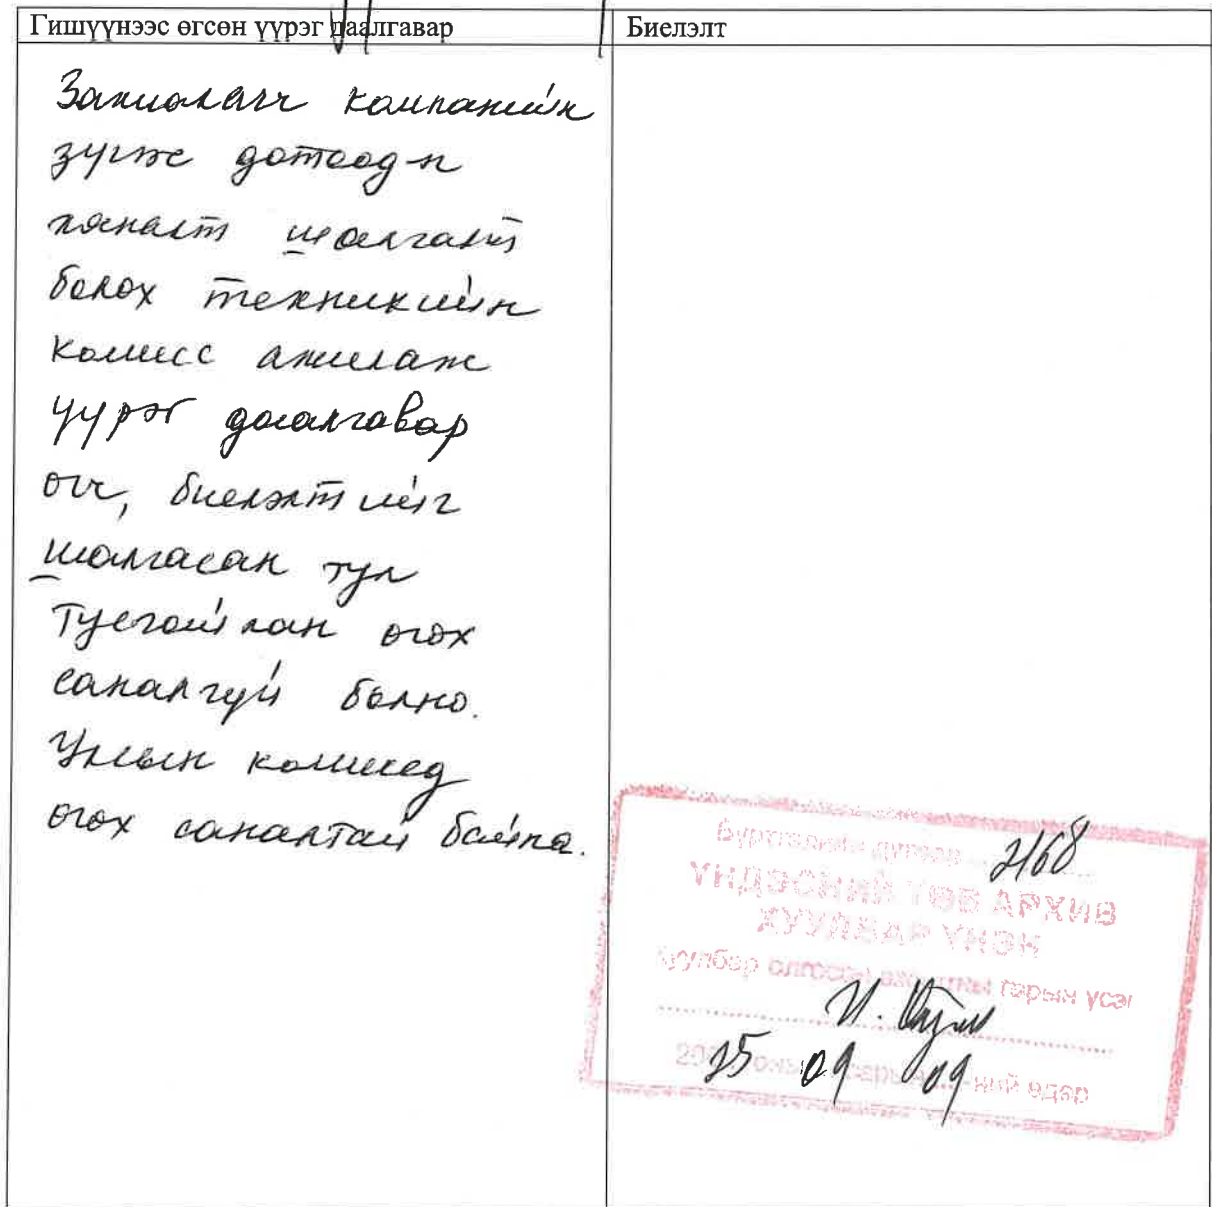 Гишүүнээс өгсөн үүрэг даалгавар
Биелэлт
Захиалагч компанийн
зүгээс дотоодын
хяналт шалгалт
болох техникийн
комисс ажиллаж
үүрэг даалгавар
өгч, биелэлтийг
шалгасан тул
Тусгайлан өгөх
саналгүй болно.
Улсын комисст
өгөх саналтай байна.
Бүртгэлийн дугаар 2168
ҮНДЭСНИЙ ТӨВ АРХИВ
ХУУЛБАР ҮНЭН
Хуулбар олгосон ажилтны гарын үсэг
И.
2025 оны 09 сарын 09-ний өдөр